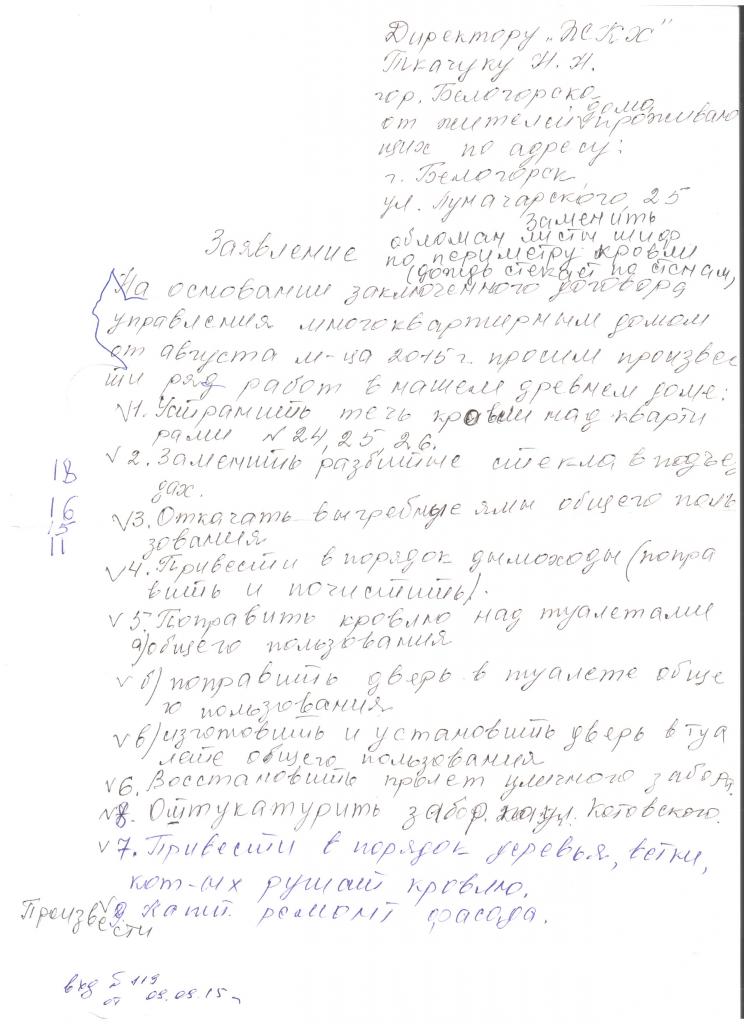 Директору „ЖСКХ"
Ткачуку Н. Н.
гор. Белогорска
дома,
от жителей проживаю
щих по адресу:
г. Белогорск
ул. Луначарского, 25
Заменить
обломан листы шифр
по периметру кровли
(дождь стекает по стенам,
Заявление
На основании заключенного договора
управления многоквартирным домом
от августа м-ца 2015 г. просим произвес
ти ряд работ в нашем древнем доме:
√1. Устранить течь кровли над кварти
рами №24, 25, 26.
√2. Заменить разбитые стекла в подъез
дах.
18
16
15
11
√3. Откачать выгребные ямы общего поль
зования
√4. Привести в порядок дымоходы (попра
вить и почистить).
√5. Поправить кровлю над туалетами
а) общего пользования
√ б) поправить дверь в туалете обще
го пользования
√ в) изготовить и установить дверь в туа
лете общего пользования
√6. Восстановить пролет уличного забора.
√8. Оштукатурить забор. по ул. Котовского.
√7. Привести в порядок деревья, ветки,
кот-ых рушат кровлю.
Произвести
√9. Капит. ремонт фасада.
вхд № 119
от 09.09.15 г